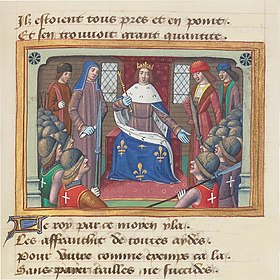 Ilz estoient tous prés et en point
Et s'en trouvoit grant quantité
Le roy par ce moyen yla
Les affranchit de toutes aydes
Pour vivre comme exemps ca la
Sans payer tailles ne succides